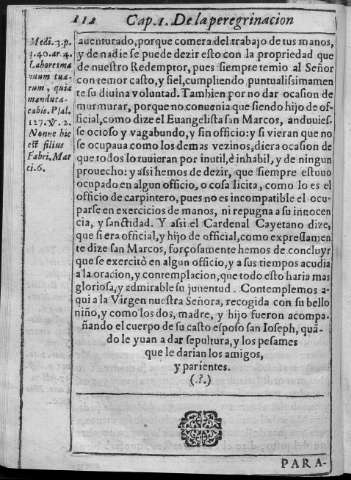 112 Cap. 1. De la peregrinacion
Medi. 3. p.
3. 40. ar. 4.
Laborem ma
nuum tua
rum, quia
manduca
cabis. Psal.
127. ℣. 2.
Nonne hic
est filius
Fabri. Mar
ci. 6.
auenturado, porque comera del trabajo de tus manos,
y de nadie se puede dezir esto con la propriedad que
de nuestro Redemptor, pues siempre temio al Señor
con temor casto, y fiel, cumpliendo puntualissimamen
te su diuina voluntad. Tambien por no dar ocasion de
murmurar, porque no conuenia que siendo hijo de of-
ficial, como dize el Euangelista san Marcos, anduuies-
se ocioso y vagabundo, y sin officio: y si vieran que no
se ocupaua como los demas vezinos, diera ocasion de
que todos lo tuuieran por inutil, è inhabil, y de ningun
prouecho: y assi hemos de dezir, que siempre estuuo
ocupado en algun officio, o cosa licita, como lo es el
officio de carpintero, pues no es incompatible el ocu-
parse en exercicios de manos, ni repugna a su innocen
cia, y sanctidad. Y assi el Cardenal Cayetano dize,
que si era official, y hijo de official, como expressamen
te dize san Marcos, forçosamente hemos de concluyr
que se exercitò en algun officio, y a sus tiempos acudia
a la oracion, y contemplacion, que todo esto haria mas
gloriosa, y admirable su juuentud. Contemplemos a-
qui a la Virgen nuestra Señora, recogida con su bello
niño, y como los dos, madre, y hijo fueron acompa-
ñando el cuerpo de su casto esposo san Ioseph, quã-
do le yuan a dar sepultura, y los pesames
que le darian los amigos,
y parientes.
(.?.)
PARA-